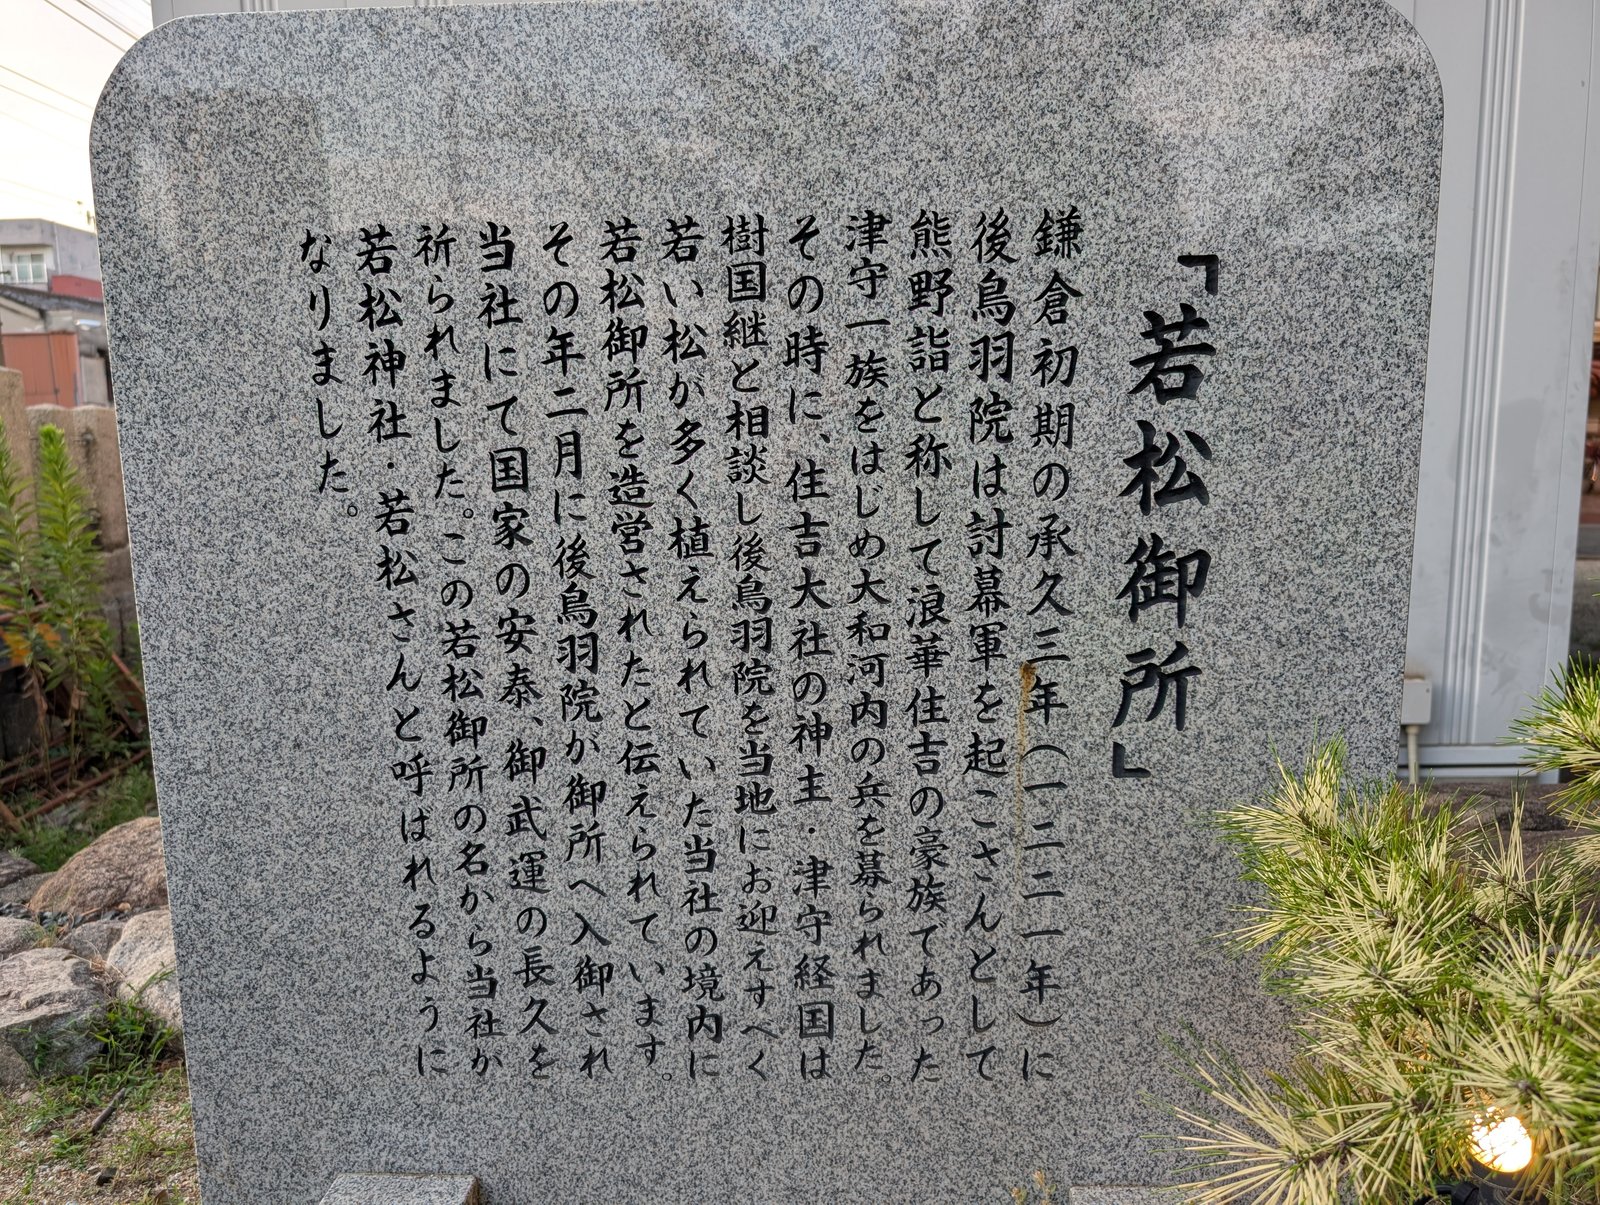 「若松御所」
鎌倉初期の承久三年（一二二一年）に
後鳥羽院は討幕軍を起こさんとして
熊野詣と称して浪華住吉の豪族であった
津守一族をはじめ大和河内の兵を募られました。
その時に、住吉大社の神主・津守経国は
樹国継と相談し後鳥羽院を当地にお迎えすべく
若い松が多く植えられていた当社の境内に
若松御所を造営されたと伝えられています。
その年二月に後鳥羽院が御所へ入御され
当社にて国家の安泰、御武運の長久を
祈られました。この若松御所の名から当社か
若松神社・若松さんと呼ばれるように
なりました。